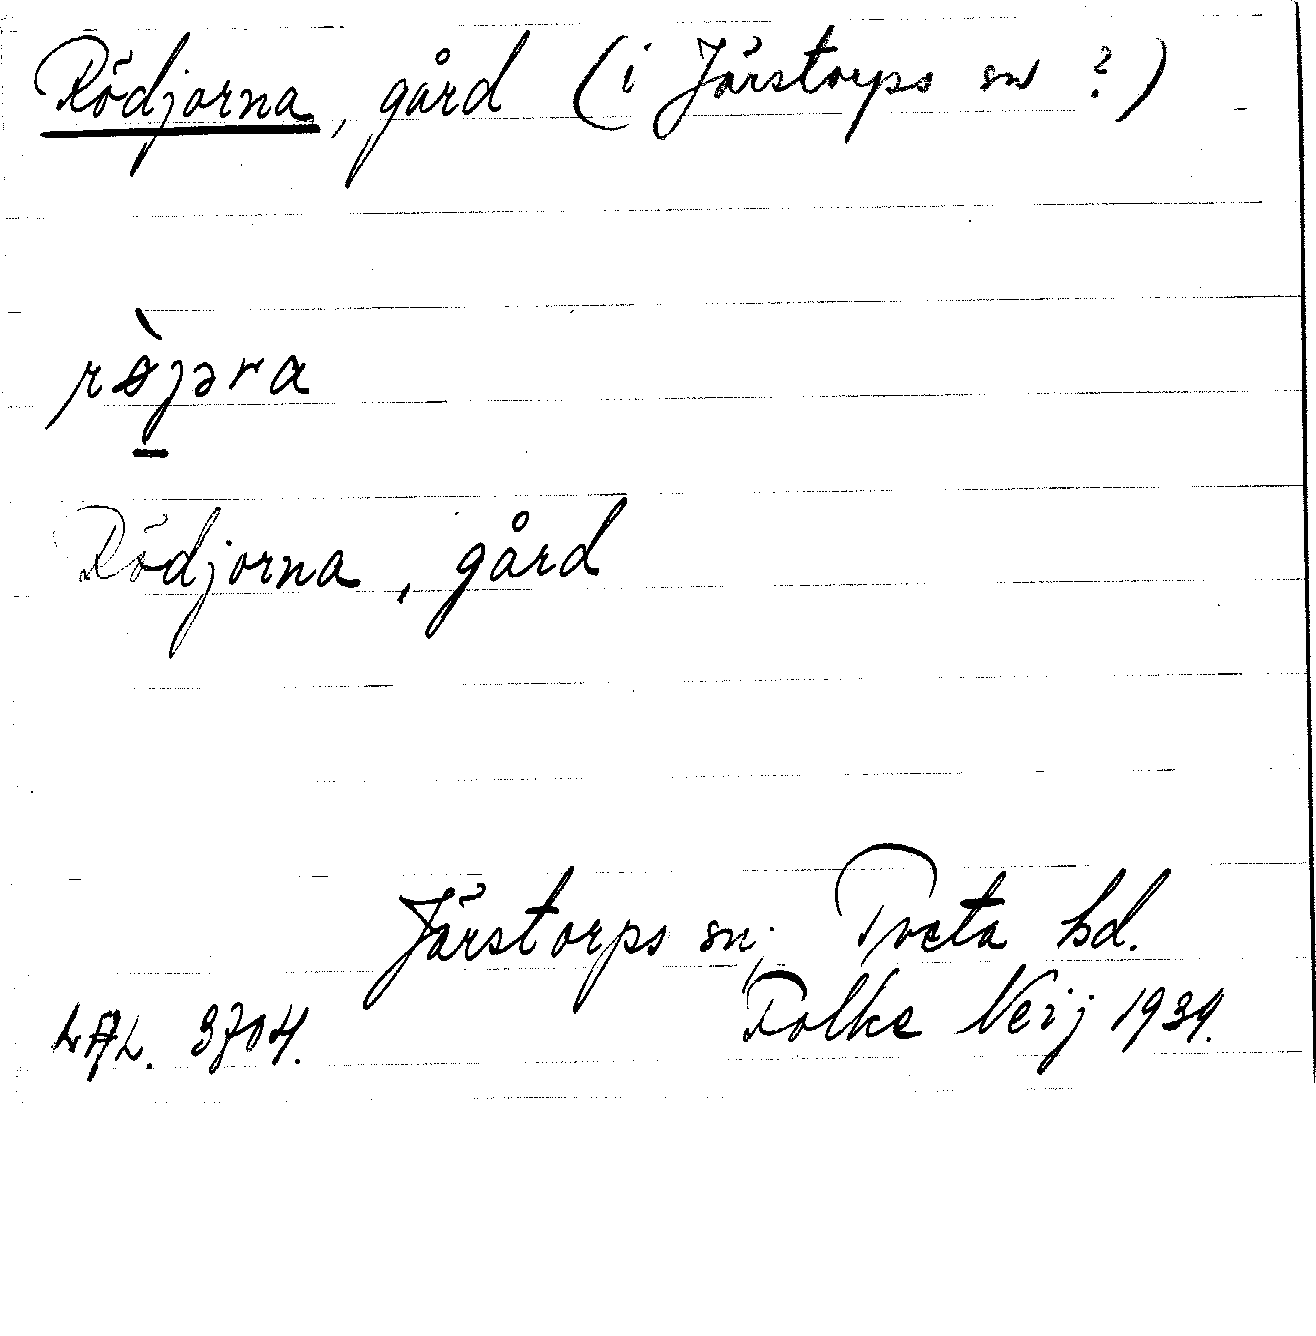 Rödjorna, gård (i Järstorps sn ?)
rø̀jəra
Rödjorna, gård
Järstorps sn; Tveta hd.
LAL. 3704. Folke Neij 1939.